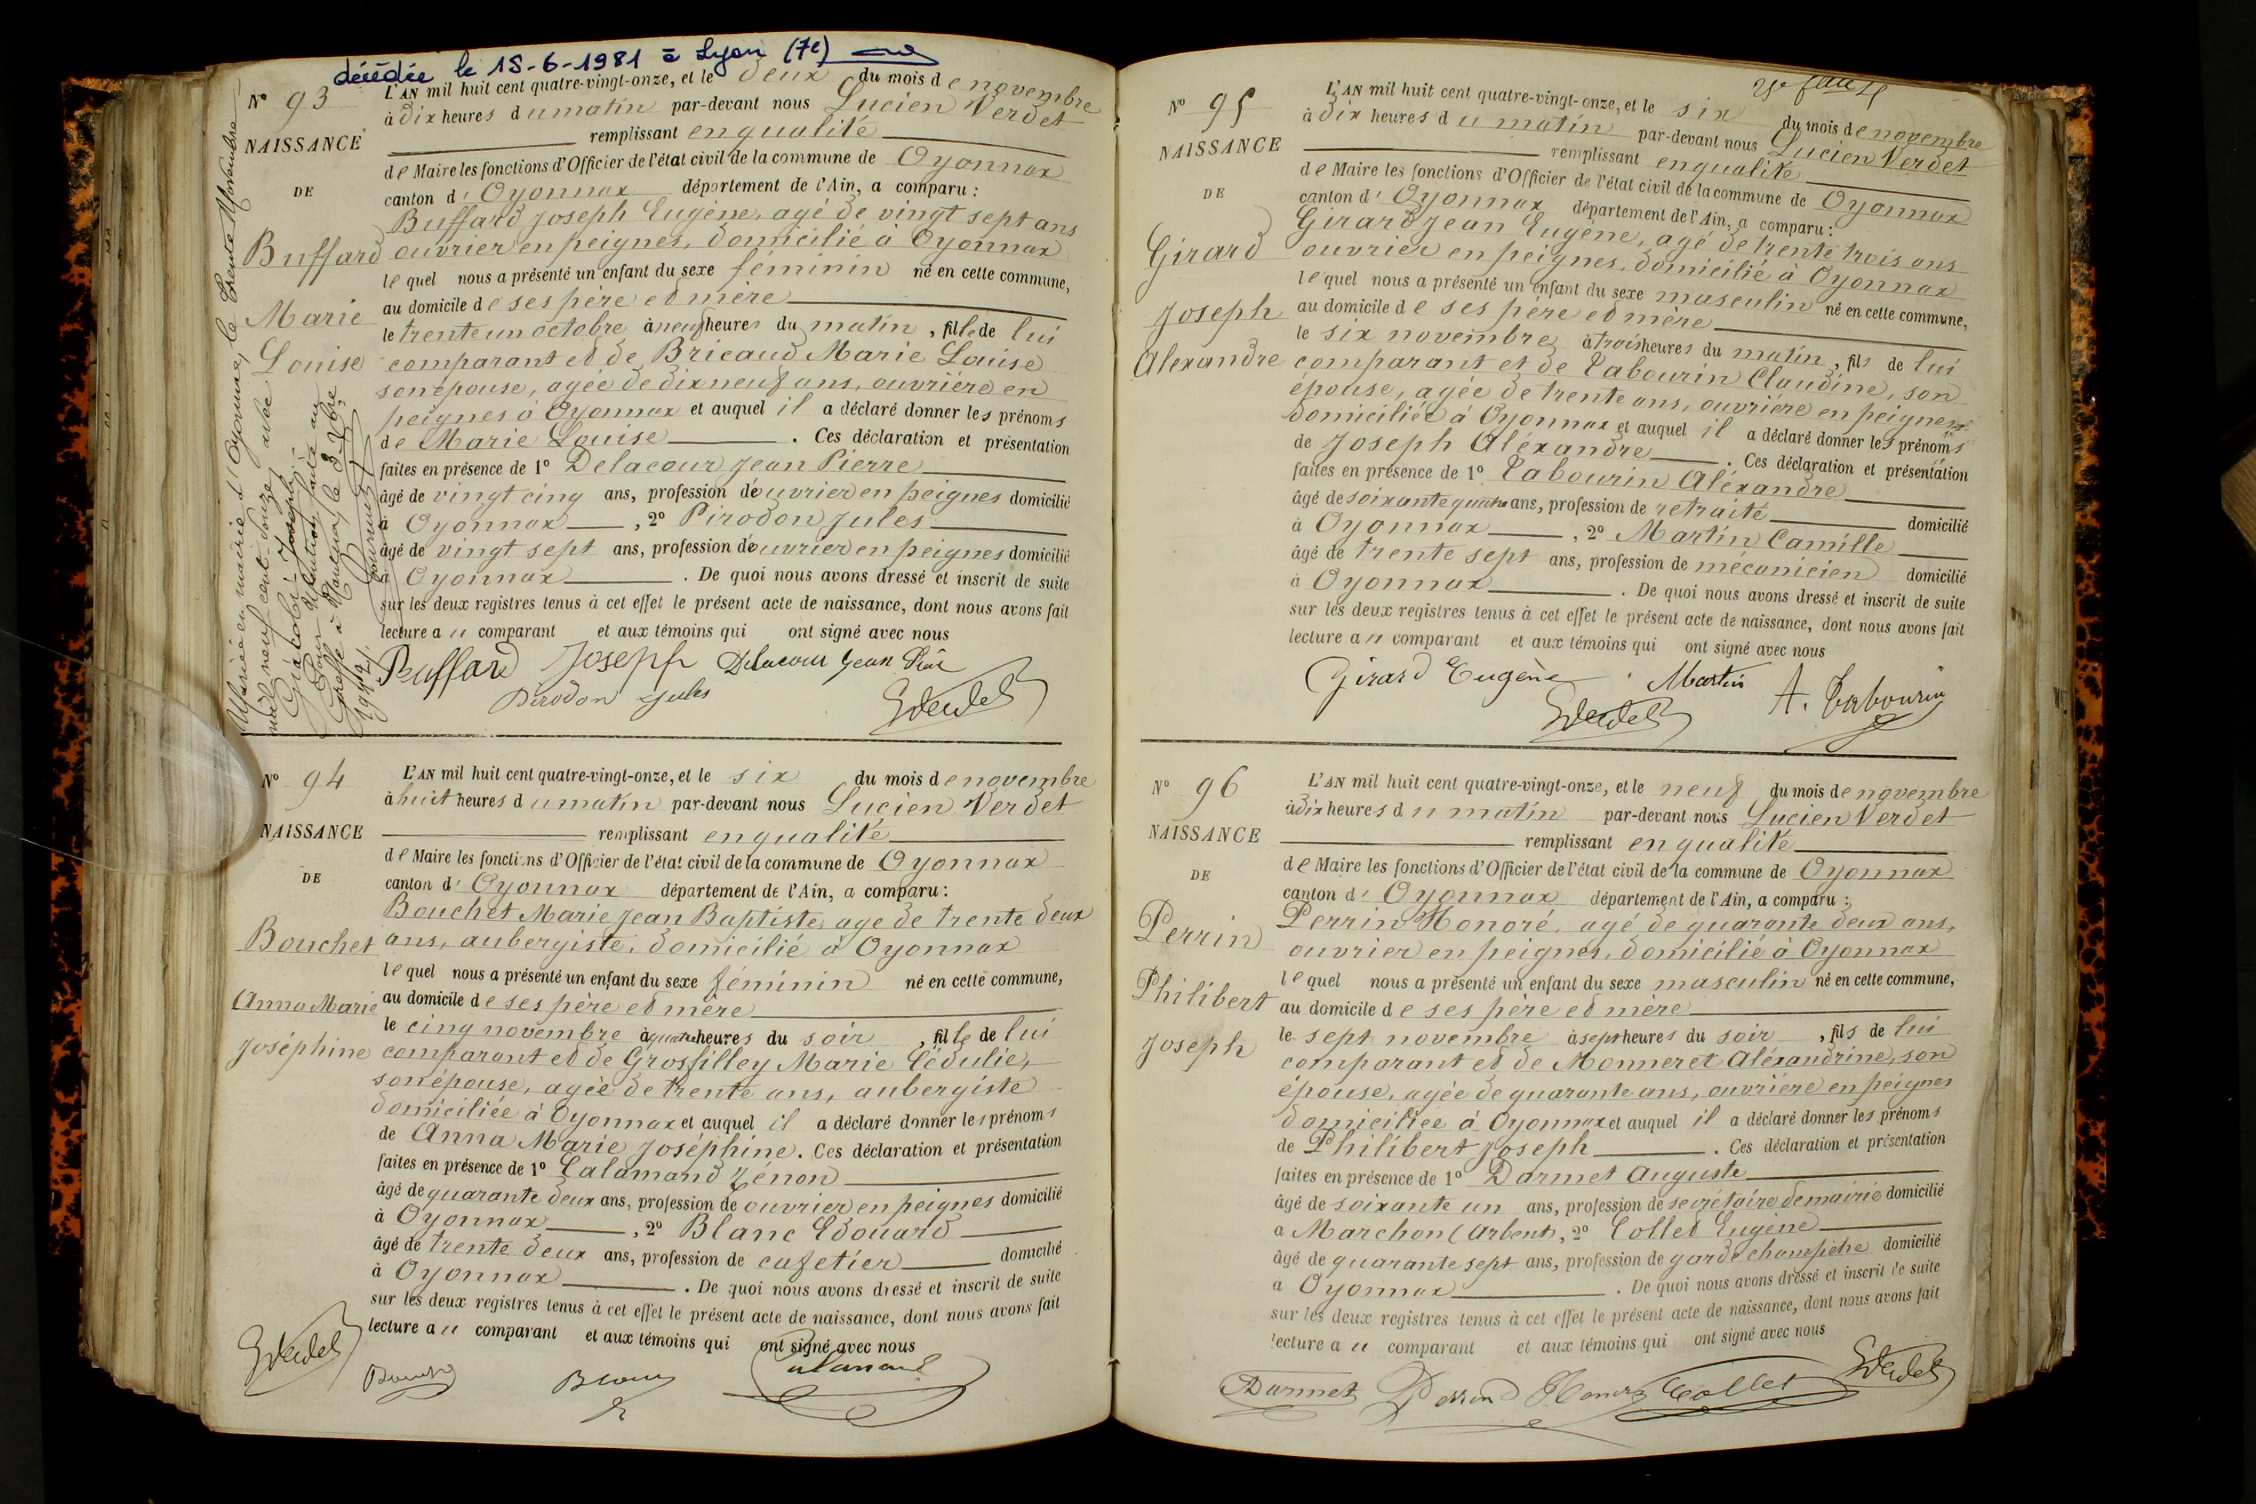 décédée le 15-6-1981 à Lyon (7e)
N° 93
NAISSANCE
DE
Buffard
Marie
Louise
Mariée en mairie d'Oyonnax, le trente Novembre
mil neuf cent douze avec
Giacobi Joseph.
Pour Mention faite au
Greffe à Nantua, le 3 Xbre
1912.
L'AN mil huit cent quatre-vingt-onze, et le deux du mois de novembre
à dix heures du matin par-devant nous Lucien Verdet
remplissant en qualité
de Maire les fonctions d'Officier de l'état civil de la commune de Oyonnax
canton d' Oyonnax département de l'Ain, a comparu :
Buffard Joseph Eugène, agé de vingt sept ans
ouvrier en peignes, domicilié à Oyonnax
lequel nous a présenté un enfant du sexe féminin né en cette commune,
au domicile de ses père et mère
le trente un octobre à neuf heures du matin, fille de lui
comparant et de Bricaud Marie Louise
son épouse, agée de dix neuf ans, ouvrière en
peignes à Oyonnax et auquel il a déclaré donner les prénoms
de Marie Louise. Ces déclaration et présentation
faites en présence de 1° Delacour Jean Pierre
âgé de vingt cinq ans, profession d'ouvrier en peignes domicilié
à Oyonnax, 2° Pirodon Jules
âgé de vingt sept ans, profession d'ouvrier en peignes domicilié
à Oyonnax. De quoi nous avons dressé et inscrit de suite
sur les deux registres tenus à cet effet le présent acte de naissance, dont nous avons fait
lecture au comparant et aux témoins qui ont signé avec nous
Buffard Joseph Delacour Jean Pierre
Pirodon Jules
Verdet
N° 94
NAISSANCE
DE
Bouchet
Anna Marie
Joséphine
L'AN mil huit cent quatre-vingt-onze, et le six du mois de novembre
à huit heures du matin par-devant nous Lucien Verdet
remplissant en qualité
de Maire les fonctions d'Officier de l'état civil de la commune de Oyonnax
canton d' Oyonnax département de l'Ain, a comparu :
Bouchet Marie Jean Baptiste, age de trente deux
ans, aubergiste, domicilié à Oyonnax
lequel nous a présenté un enfant du sexe féminin né en cette commune,
au domicile de ses père et mère
le cinq novembre à quatre heures du soir, fille de lui
comparant et de Grosfilley Marie Cédulie,
son épouse, agée de trente ans, aubergiste
domiciliée à Oyonnax et auquel il a déclaré donner les prénoms
de Anna Marie Joséphine. Ces déclaration et présentation
faites en présence de 1° Calamand Zénon
âgé de quarante deux ans, profession de ouvrier en peignes domicilié
à Oyonnax, 2° Blanc Edouard
âgé de trente deux ans, profession de cafetier domicilié
à Oyonnax. De quoi nous avons dressé et inscrit de suite
sur les deux registres tenus à cet effet le présent acte de naissance, dont nous avons fait
lecture au comparant et aux témoins qui ont signé avec nous
Verdet Bouchet Blanc Calamand
N° 95
NAISSANCE
DE
Girard
Joseph
Alexandre
L'AN mil huit cent quatre-vingt-onze, et le six du mois de novembre
à dix heures du matin par-devant nous Lucien Verdet
remplissant en qualité
de Maire les fonctions d'Officier de l'état civil de la commune de Oyonnax
canton d' Oyonnax département de l'Ain, a comparu :
Girard Jean Eugène, agé de trente trois ans
ouvrier en peignes, domicilié à Oyonnax
lequel nous a présenté un enfant du sexe masculin né en cette commune,
au domicile de ses père et mère
le six novembre à trois heures du matin, fils de lui
comparant et de Tabourin Claudine, son
épouse, agée de trente ans, ouvrière en peignes
domiciliée à Oyonnax et auquel il a déclaré donner les prénoms
de Joseph Aléxandre. Ces déclaration et présentation
faites en présence de 1° Tabourin Aléxandre
âgé de soixante quatre ans, profession de retraité
à Oyonnax, 2° Martin Camille domicilié
âgé de trente sept ans, profession de mécanicien domicilié
à Oyonnax. De quoi nous avons dressé et inscrit de suite
sur les deux registres tenus à cet effet le présent acte de naissance, dont nous avons fait
lecture au comparant et aux témoins qui ont signé avec nous
Girard Eugène Martin A. Tabourin
Verdet
N° 96
NAISSANCE
DE
Perrin
Philibert
Joseph
L'AN mil huit cent quatre-vingt-onze, et le neuf du mois de novembre
à dix heures du matin par-devant nous Lucien Verdet
remplissant en qualité
de Maire les fonctions d'Officier de l'état civil de la commune de Oyonnax
canton d' Oyonnax département de l'Ain, a comparu :
Perrin Honoré, agé de quarante deux ans,
ouvrier en peignes, domicilié à Oyonnax
lequel nous a présenté un enfant du sexe masculin né en cette commune,
au domicile de ses père et mère
le sept novembre à sept heures du soir, fils de lui
comparant et de Monneret Aléxandrine, son
épouse, agée de quarante ans, ouvrière en peignes
domiciliée à Oyonnax et auquel il a déclaré donner les prénoms
de Philibert Joseph. Ces déclaration et présentation
faites en présence de 1° Darmet Auguste
âgé de soixante un ans, profession de secrétaire de mairie domicilié
a Marchon (Arbent), 2° Collet Eugène
âgé de quarante sept ans, profession de garde champêtre domicilié
à Oyonnax. De quoi nous avons dressé et inscrit de suite
sur les deux registres tenus à cet effet le présent acte de naissance, dont nous avons fait
lecture au comparant et aux témoins qui ont signé avec nous
Darmet Perrin Honoré Collet Verdet